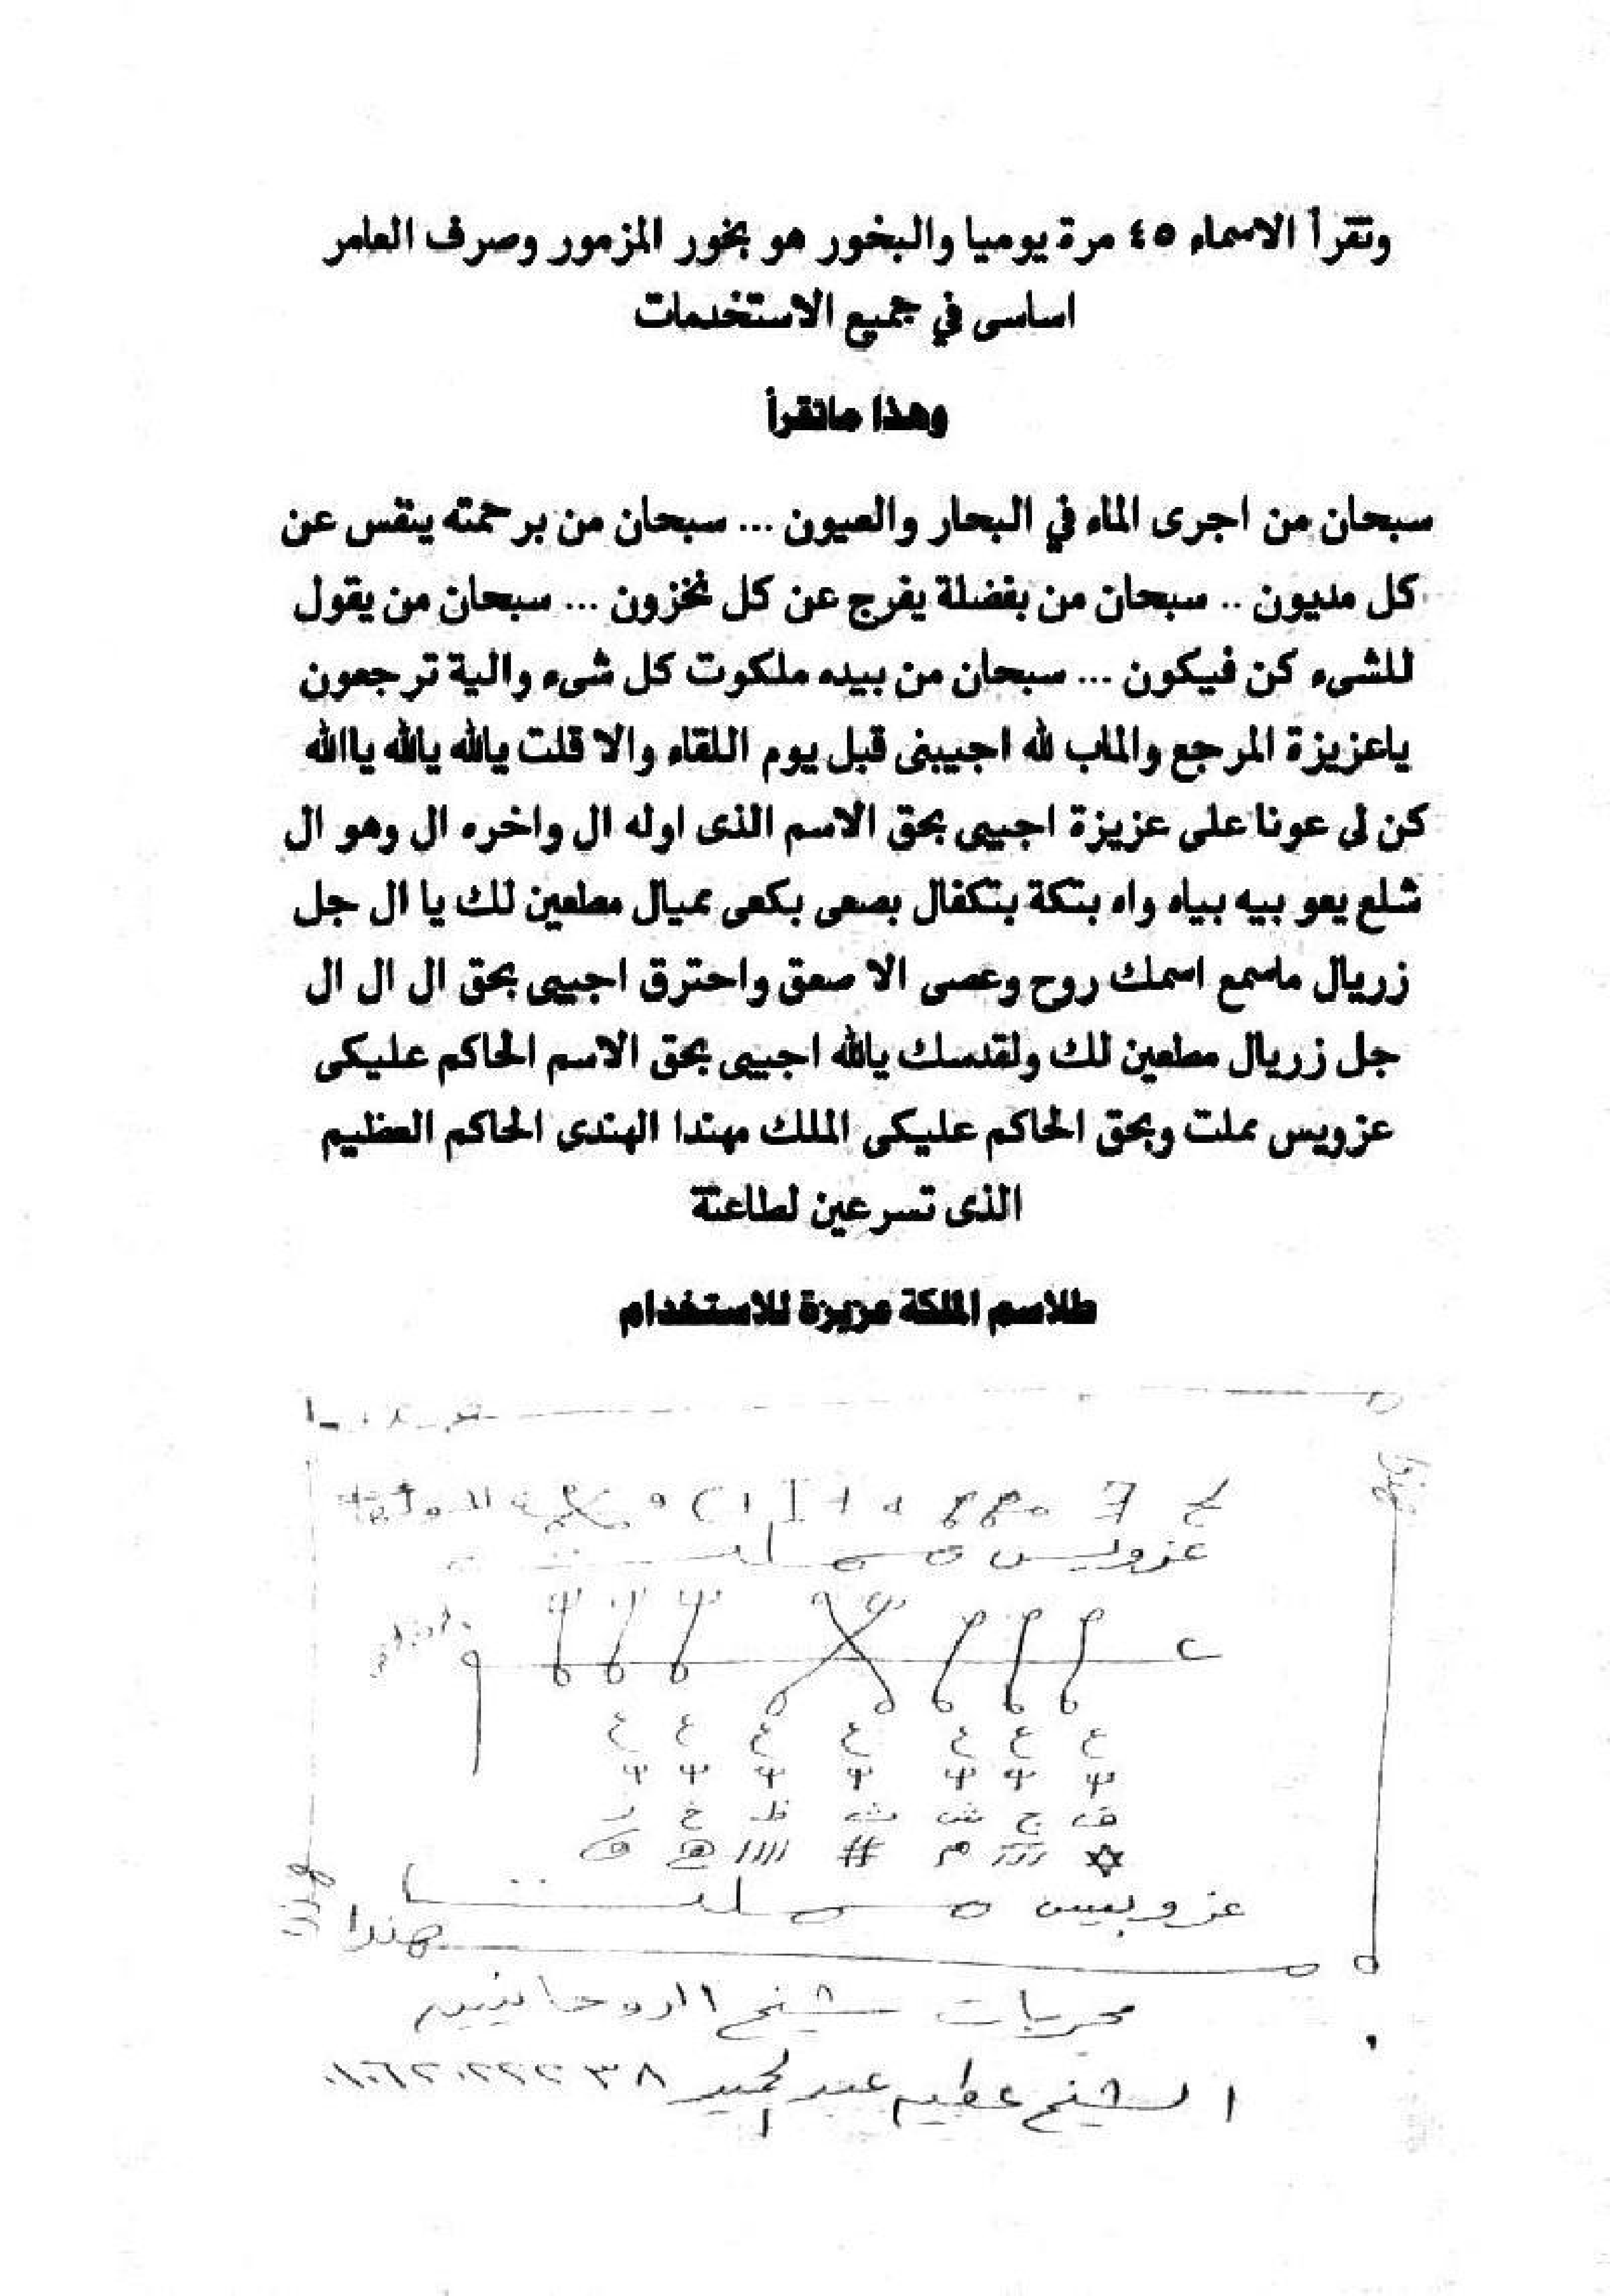 وتقرأ الاسماء ٤٥ مرة يوميا والبخور هو بخور المزمور وصرف العامر
اساسى في جميع الاستخدمات
وهذا ماتقرأ
سبحان من اجرى الماء في البحار والعيون ... سبحان من برحمته ينفس عن
كل مديون .. سبحان من بفضلة يفرج عن كل مخزون ... سبحان من يقول
للشىء كن فيكون ... سبحان من بيده ملكوت كل شىء والية ترجعون
ياعزيزة المرجع والماب لله اجيبنى قبل يوم اللقاء والا قلت يالله يالله ياالله
كن لى عونا على عزيزة اجيبى بحق الاسم الذى اوله ال واخره ال وهو ال
شلع يعو بيه بياه واه بتكة بتكفال بصعى بكعى مميال مطعين لك يا ال جل
زريال ماسمع اسمك روح وعصى الا صعق واحترق اجيبى بحق ال ال ال
جل زريال مطعين لك ولقدسك يالله اجيبى بحق الاسم الحاكم عليكى
عزويس مملت وبحق الحاكم عليكى الملك مهندا الهندى الحاكم العظيم
الذى تسرعين لطاعتة
طلاسم الملكة عزيزة للاستخدام
عزويس
ع ع ع ع ع ع ع
ف ج ش ث ظ خ ز
#
مهندا
مجربات شيخ الروحانيين
الشيخ عطيه عبد الحميد